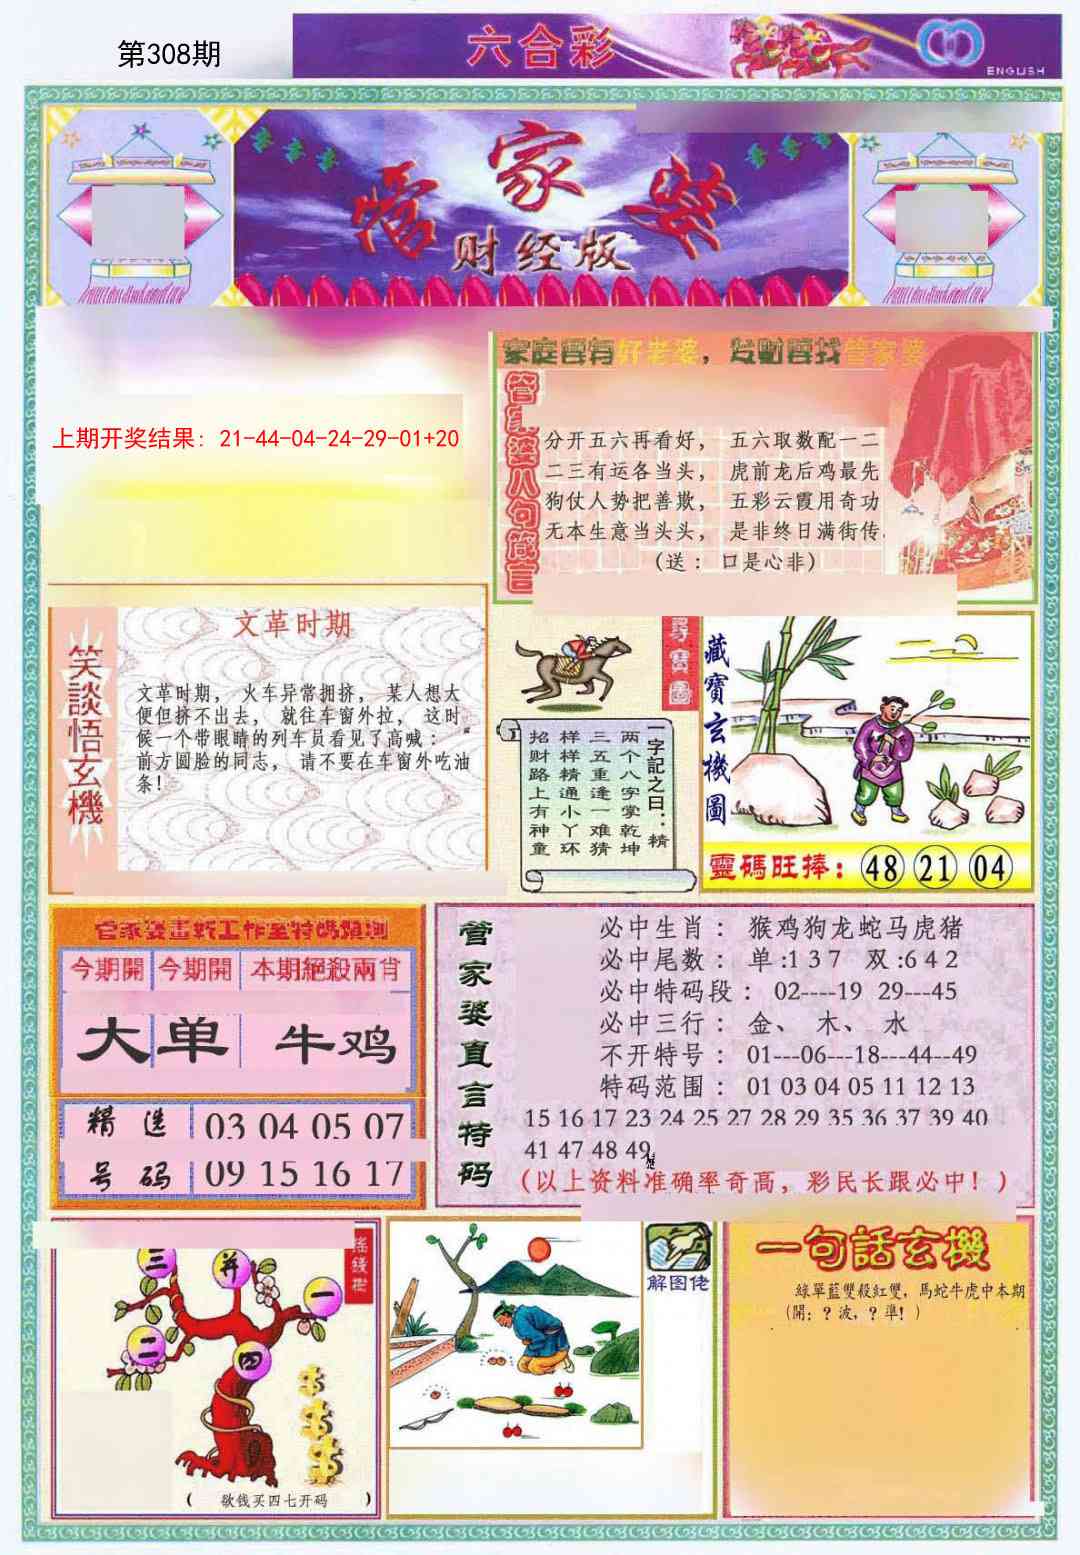 第308期
六合彩
ENGLISH
管家婆
财经版
上期开奖结果：21-44-04-24-29-01+20
家庭要有好老婆，发财要找管家婆
管家婆八句箴言
分开五六再看好， 五六取数配一二
二三有运各当头， 虎前龙后鸡最先
狗仗人势把善欺， 五彩云霞用奇功
无本生意当头头， 是非终日满街传.
(送：口是心非)
笑談悟玄機
文革时期
文革时期， 火车异常拥挤， 某人想大
便但挤不出去， 就往车窗外拉， 这时
候一个带眼睛的列车员看见了高喊：“
前方圆脸的同志， 请不要在车窗外吃油
条!
尋寶圖
一字記之曰：精
两个八字掌乾坤
三五重逢一难猜
样样精通小丫环
招财路上有神童
藏寶玄機圖
靈碼旺捧： 48 21 04
管家婆畫新工作室特碼預測
今期開 今期開 本期絕殺兩肖
大 单 牛鸡
精 选 03 04 05 07
号 码 09 15 16 17
管家婆直言特码
必中生肖： 猴鸡狗龙蛇马虎猪
必中尾数： 单:1 3 7 双:6 4 2
必中特码段： 02----19 29---45
必中三行： 金、 木、 水
不开特号： 01---06---18---44--49
特码范围： 01 03 04 05 11 12 13
15 16 17 23 24 25 27 28 29 35 36 37 39 40
41 47 48 49
(以上资料准确率奇高，彩民长跟必中！)
摇錢樹
三 并 一
二 四
( 欲钱买四七开码 )
解图佬
一句話玄機
綠單藍雙殺紅雙，馬蛇牛虎中本期
(開：？波，？準！)